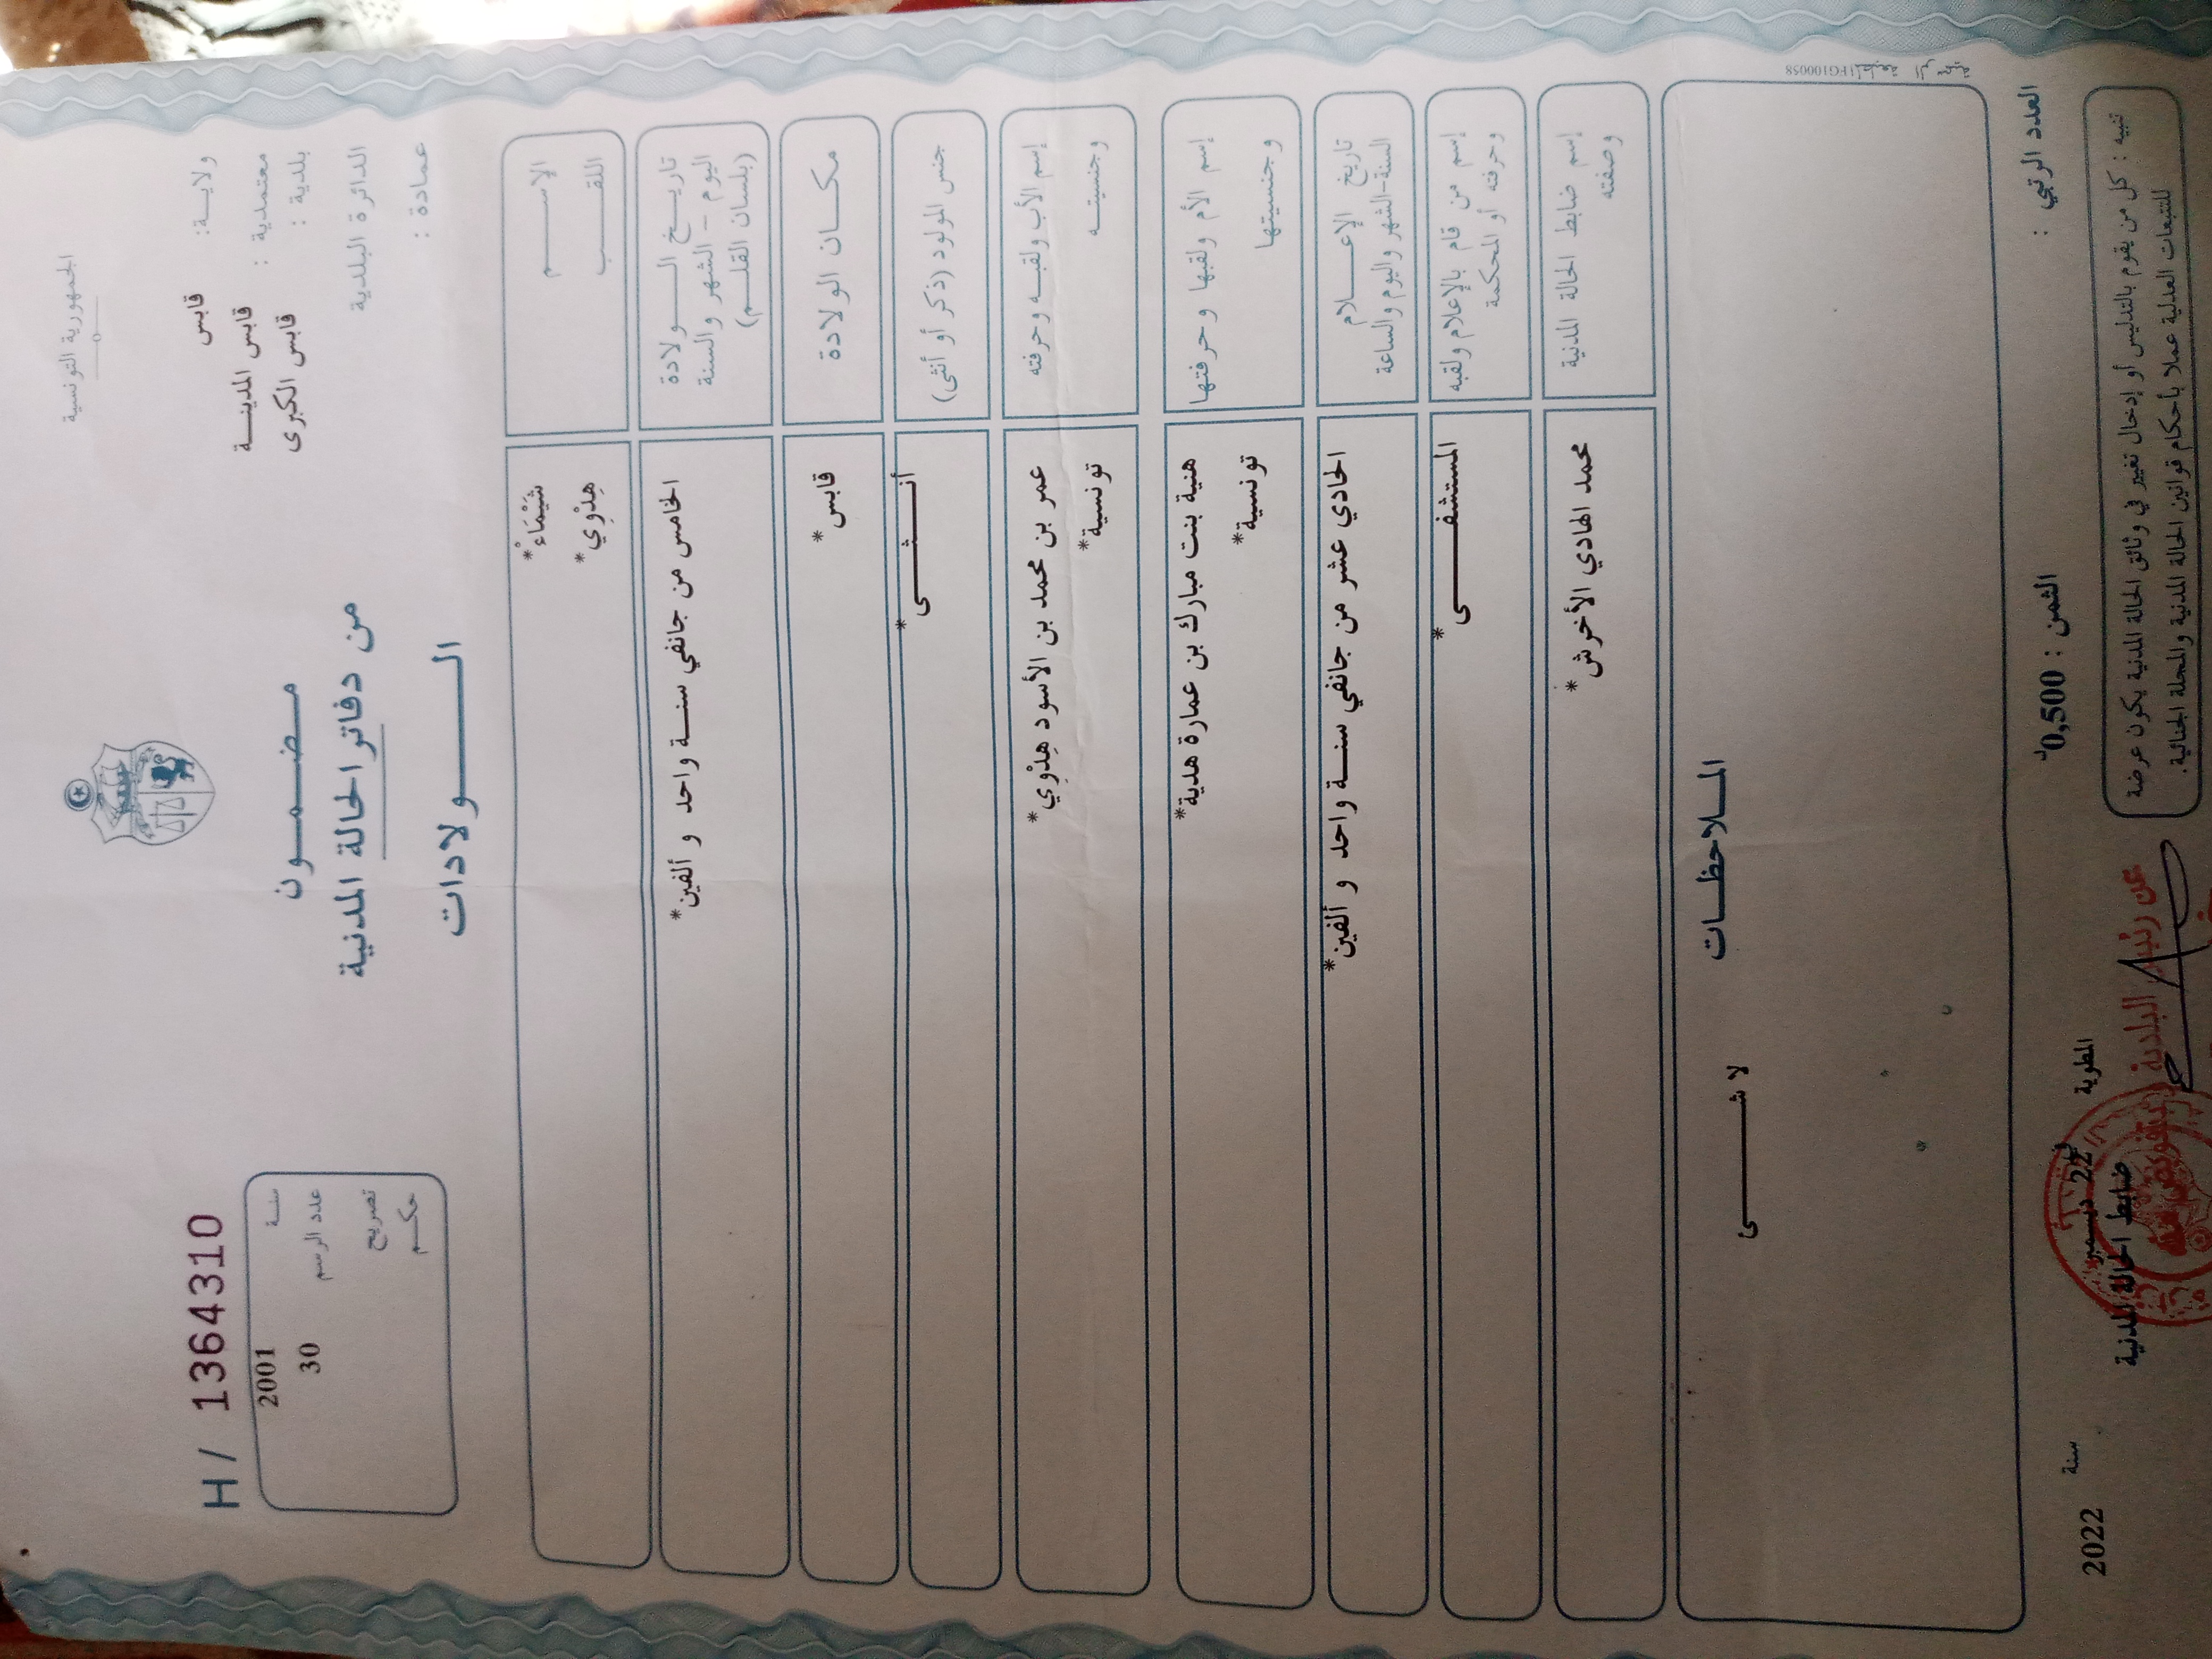 الجمهورية التونسية
ولايــة: قابس
معتمدية : قابس المدينــة
بلدية : قابس الكبرى
الدائرة البلدية
عمادة :
مـضـمــون
من دفاتر الحالة المدنية
الــــولادات
H / 1364310
سنـة 2001
عدد الرسم 30
تصريح
حكـم
الإســـم شَيْمَاءْ*
اللقــب هِذْوِي*
تاريــخ الــــولادة
اليوم - الشهر والسنة
(بلسان القلــم)
الخامس من جانفي سنــة واحد و ألفين*
مكــان الولادة قابس*
جنس المولود (ذكر أو أنثى) أنــــثــــى*
إسم الأب ولقبــه وحرفته عمر بن محمد بن الأسود هِذْوِي*
وجنسيتــه تونسية*
إسم الأم ولقبها وحرفتها هنية بنت مبارك بن عمارة هدية*
وجنسيتها تونسية*
تاريخ الإعـــلام
السنة-الشهر واليوم والساعة
الحادي عشر من جانفي سنــة واحد و ألفين*
إسم من قام بالإعلام ولقبه المستشفــــى*
وحرفته أو المحكمة
إسم ضابط الحالة المدنية محمد الهادي الأخرش*
وصفته
المــلاحظــات
لا شــــــى
المطبعة الرسمية FG100058
العدد الرتبي :
الثمن : 0,500د
المطوية في 22 ديسمبر سنة 2022
ضابط الحالة المدنية
عن رئيس البلدية
تنبيه : كل من يقوم بالتدليس أو إدخال تغيير في وثائق الحالة المدنية يكون عرضة
للتتبعات العدلية عملا بأحكام قوانين الحالة المدنية والمجلة الجنائية.